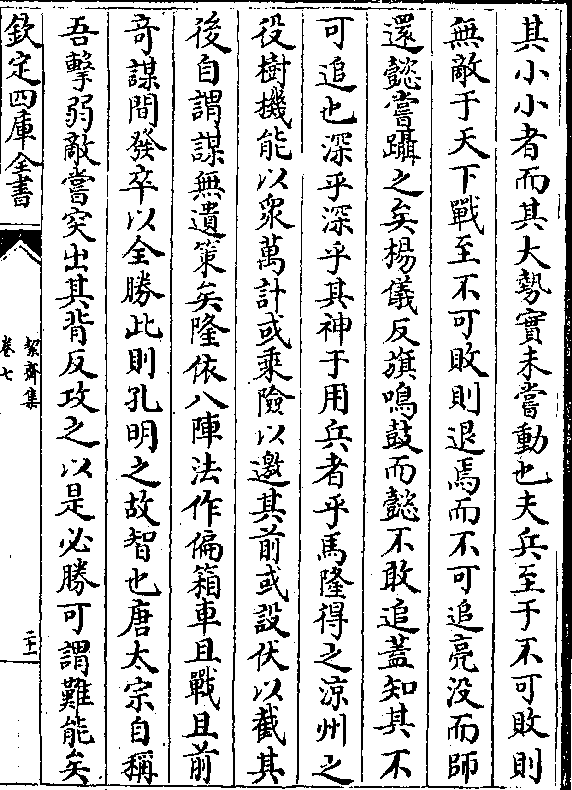 其小小者而其大勢實未嘗動也夫兵至于不可敗則
無敵于天下戰至不可敗則退焉而不可追亮没而師
還懿嘗躡之矣楊儀反旗鳴鼓而懿不敢追蓋知其不
可追也深乎深乎其神于用兵者乎馬隆得之涼州之
役樹機能以衆萬計或乘險以邀其前或設伏以截其
後自謂謀無遺策矣隆依八陣法作偏箱車且戰且前
竒謀間發卒以全勝此則孔明之故智也唐太宗自稱
吾擊弱敵嘗突出其背反攻之以是必勝可謂難能矣
欽定四庫全書
絜齋集
卷七
二十一